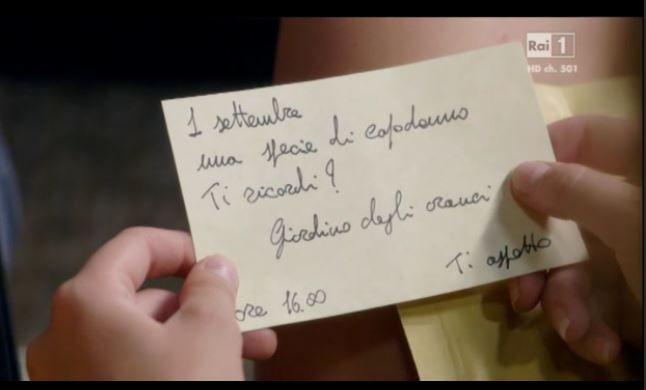 Rai 1
HD ch. 501
1 settembre
una specie di capodanno
Ti ricordi?
Giardino degli aranci
Ti aspetto
ore 16.00